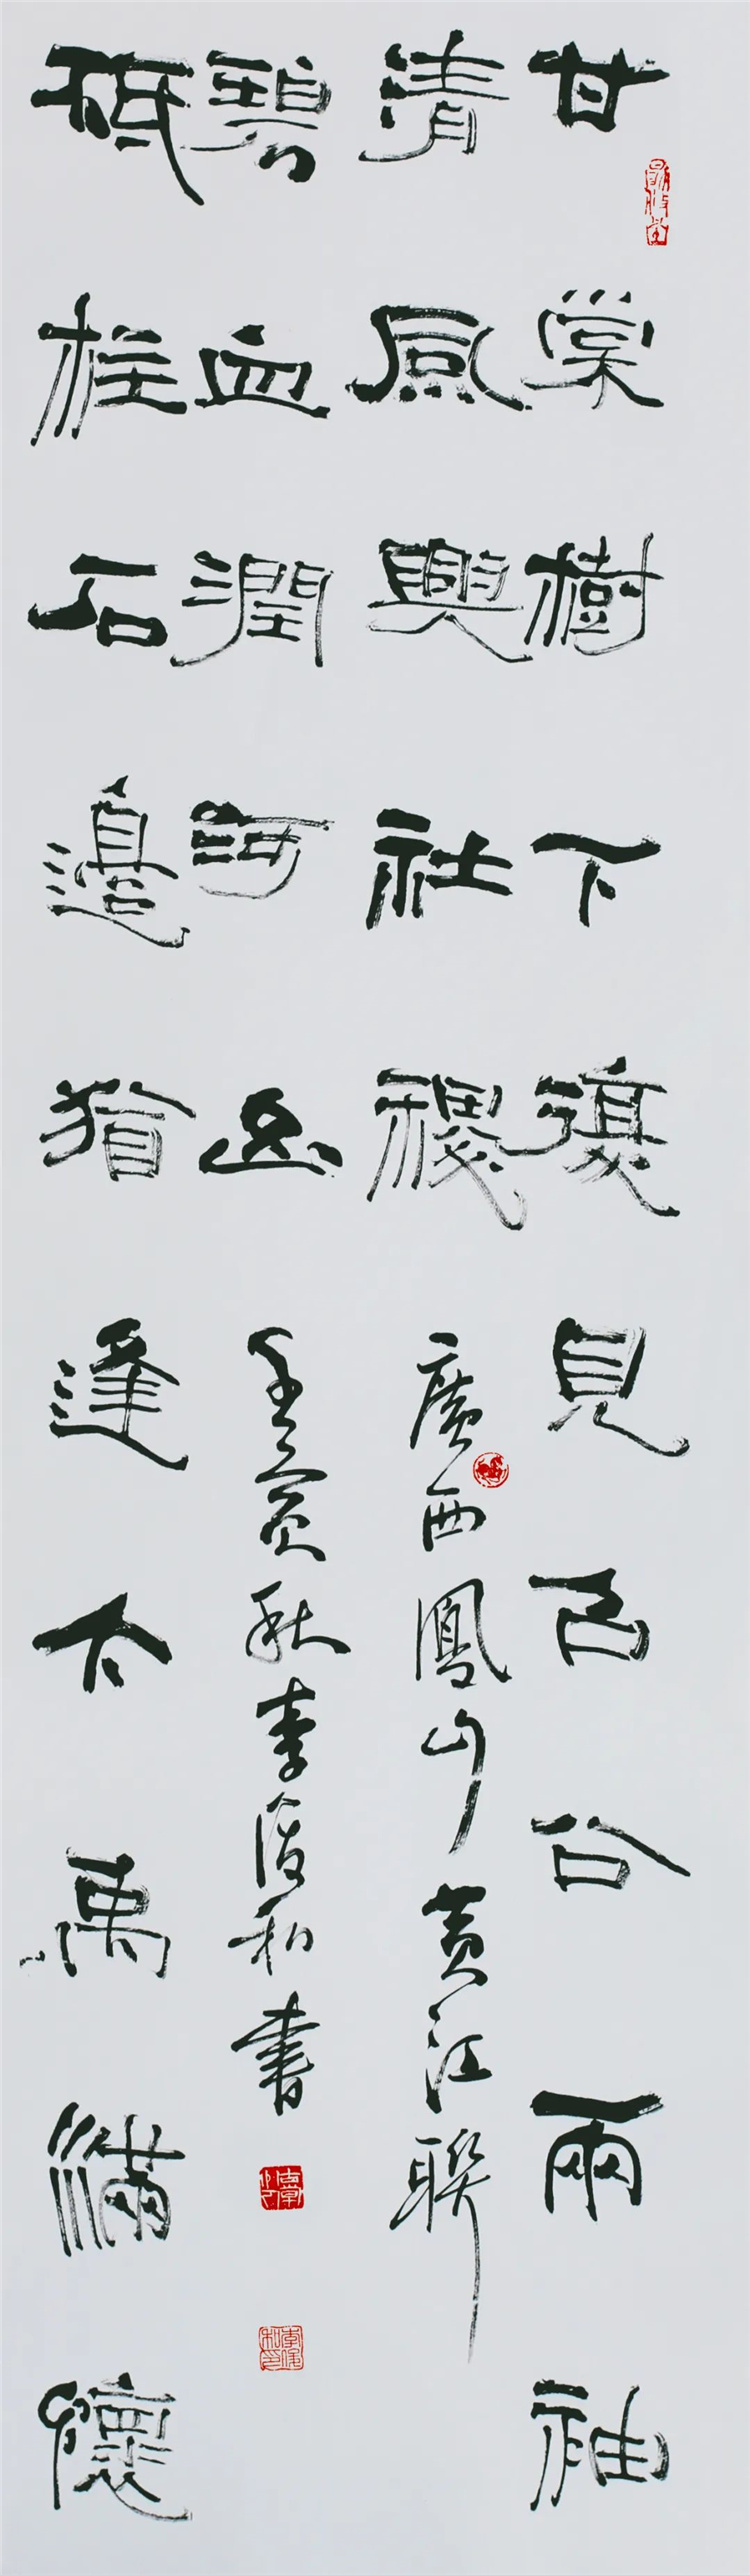 甘棠樹下復見召公兩袖
清風興社稷
廣西鳳山黄江聯
碧血潤河山
壬寅秋李俊和書
砥柱石邊猶逢大禹滿懷